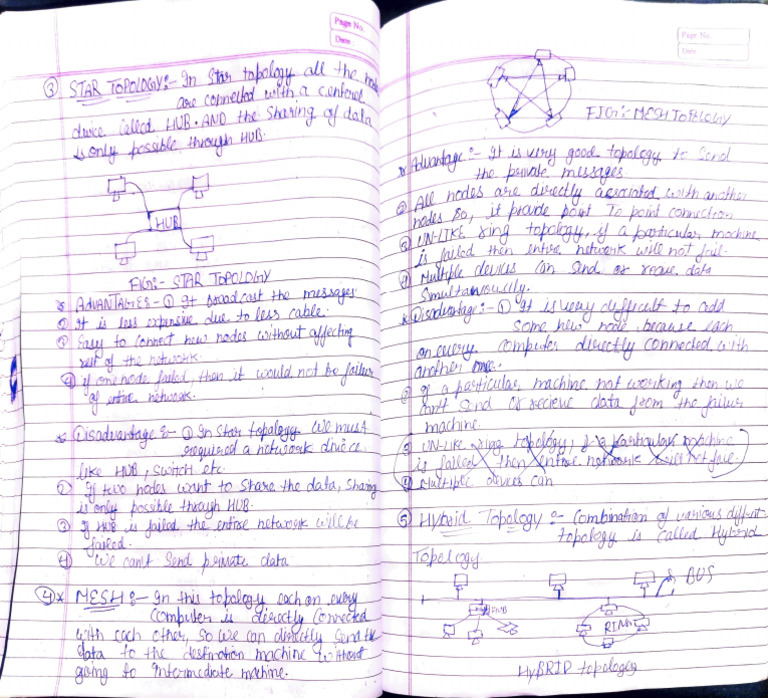 Page No.
Date
③ STAR TOPOLOGY:- In Star topology all the
are connected with a centeral
divice called HUB. AND the Sharing of data
is only possible through HUB.
HUB
FIG:- STAR TOPOLOGY
* ADVANTAGES - ① It broadcast the messages
② It is less expensive due to less cable.
③ Easy to connect new nodes without affecting
rest of the network.
④ if one node failed, then it would not be failure
of entire network.
* Disadvantage :- ① In Star topology we must
required a network divice
like HUB, switch etc.
② If two nodes want to Share the data, Sharing
is only possible through HUB.
③ If HUB is failed the entire network will be
failed.
④ We can't Send private data
④* MESH :- In this topology each on every
Computer is directly Connected
with each other, So we can directly Send the
data to the destination machine without
going to intermediate machine.
Page No.
Date
FIG:- MESH TOPOLOGY
* Advantage :- It is very good topology to Send
the private messages.
② All nodes are directly associated with another
nodes So, it provide point To point connection
③ UN-LIKE ring topology, if a particular machine
is failed then entire network will not fail.
④ Multiple devices can Send or recive data
Simultaneously.
* Disadvantage :- ① It is very difficult to add
Some new node because each
on every Computer directly connected with
another one.
② If a particular machine not working then we
can't Send or recieve data from the failure
machine.
③ UN-LIKE ring topology, if a particular machine
is failed then entire network will not fail.
④ Multiple devices can
⑤ Hybrid Topology :- Combination of various
topology is called Hybrid
Topology
BUS
HUB
RING
HYBRID topology